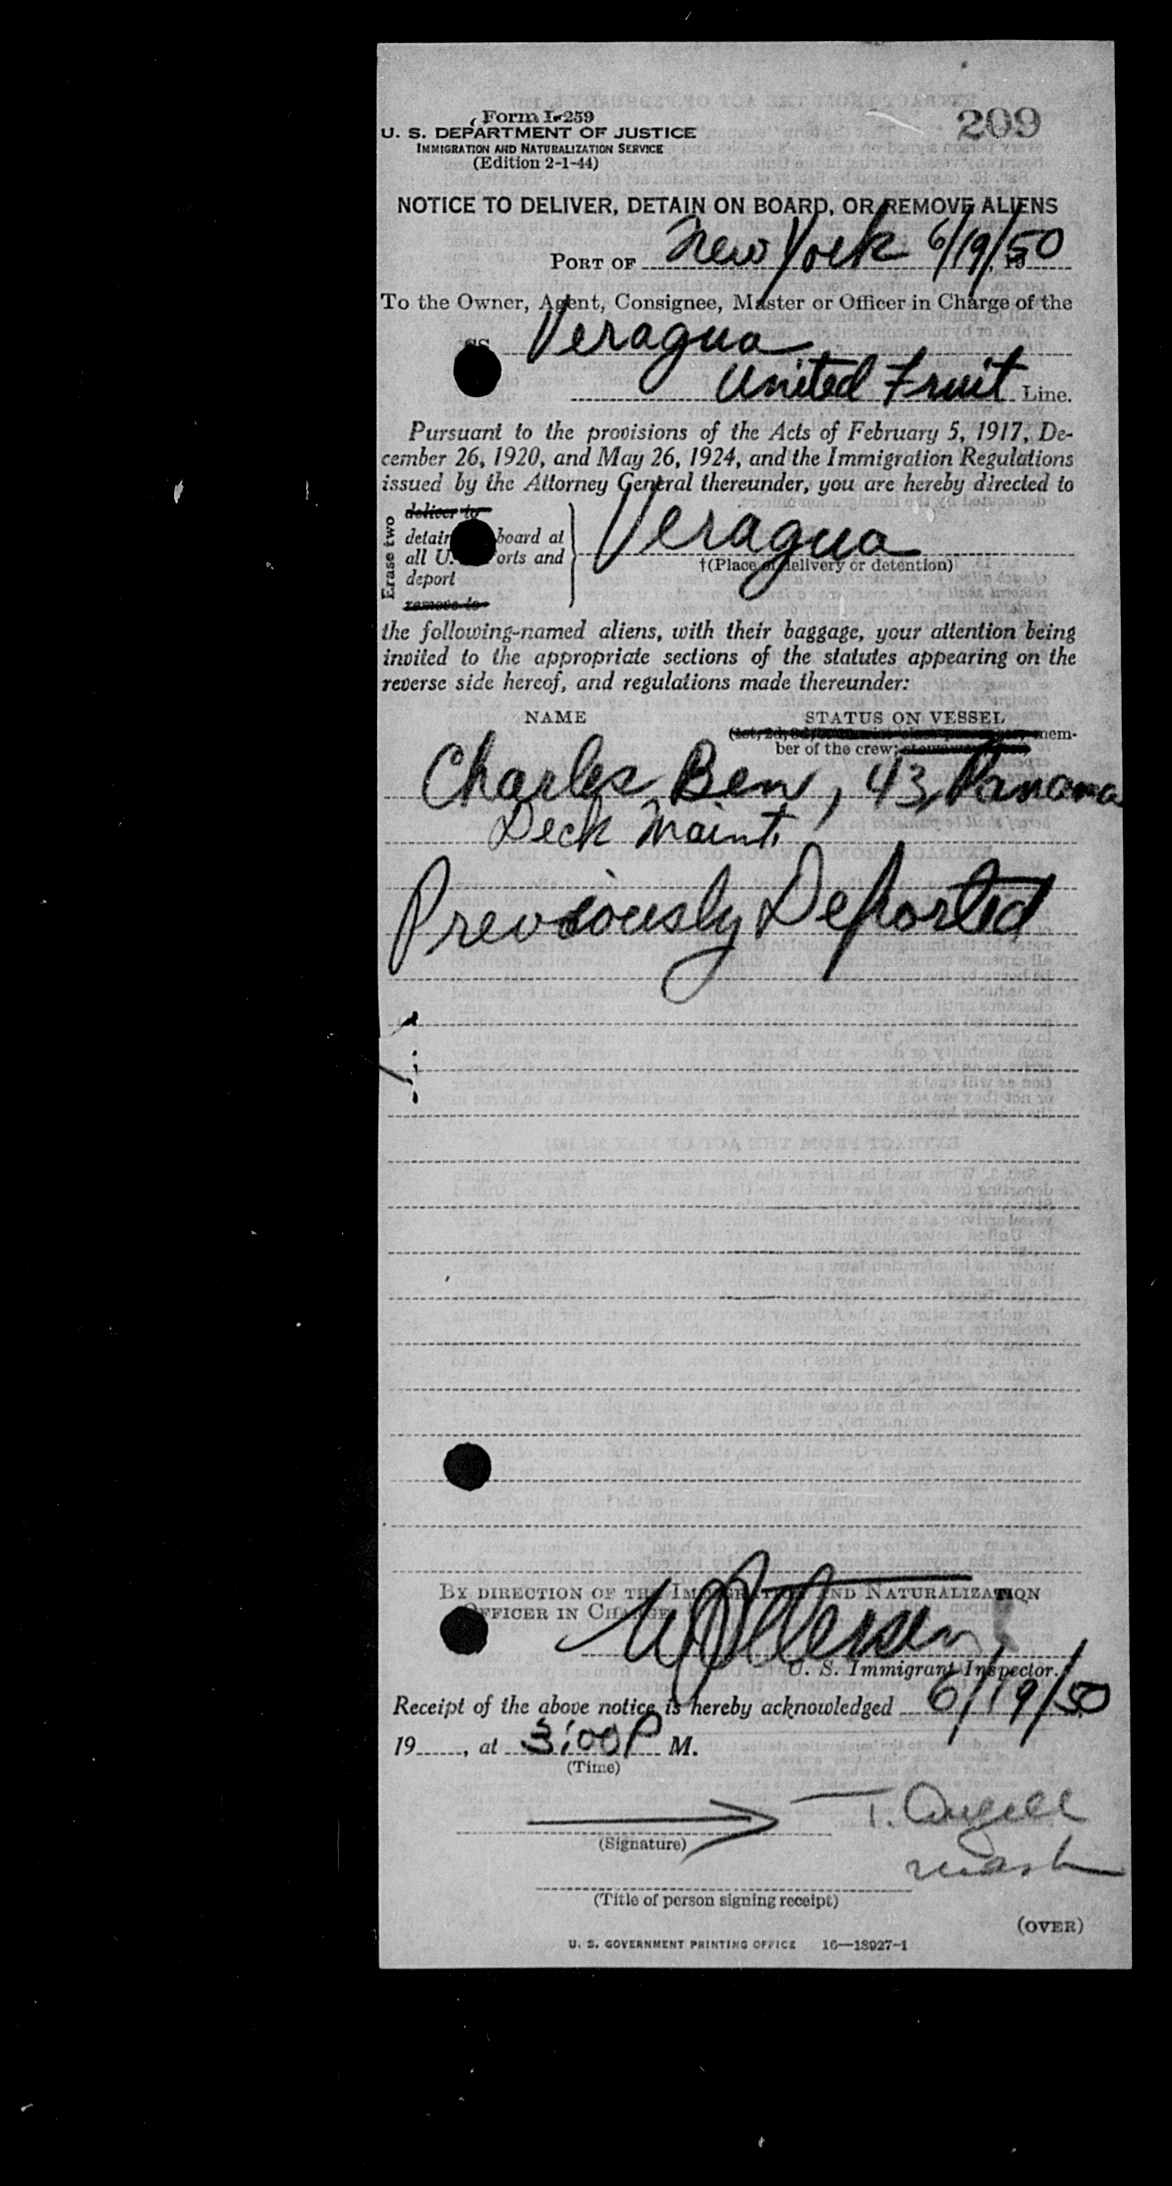 Form I-259
209
U. S. DEPARTMENT OF JUSTICE
IMMIGRATION AND NATURALIZATION SERVICE
(Edition 2-1-44)
NOTICE TO DELIVER, DETAIN ON BOARD, OR REMOVE ALIENS
PORT OF New York 6/19/50
To the Owner, Agent, Consignee, Master or Officer in Charge of the
SS Veragua
United Fruit Line.
Pursuant to the provisions of the Acts of February 5, 1917, De-
cember 26, 1920, and May 26, 1924, and the Immigration Regulations
issued by the Attorney General thereunder, you are hereby directed to
Erase two
deliver to
detain board at
all U. orts and
deport
remove to
Veragua
†(Place of delivery or detention)
the following-named aliens, with their baggage, your attention being
invited to the appropriate sections of the statutes appearing on the
reverse side hereof, and regulations made thereunder:
NAME STATUS ON VESSEL
mem-
ber of the crew;
Charles Ben, 43, Panama
Deck Maint.
Previously Deported
BY DIRECTION OF THE IMMIGRATION AND NATURALIZATION
OFFICER IN CHARGE
U. S. Immigrant Inspector.
Receipt of the above notice is hereby acknowledged 6/19/50
19, at 3:00 P M.
(Time)
T. Angell
(Signature)
(Title of person signing receipt)
(OVER)
U. S. GOVERNMENT PRINTING OFFICE 16—18927-1